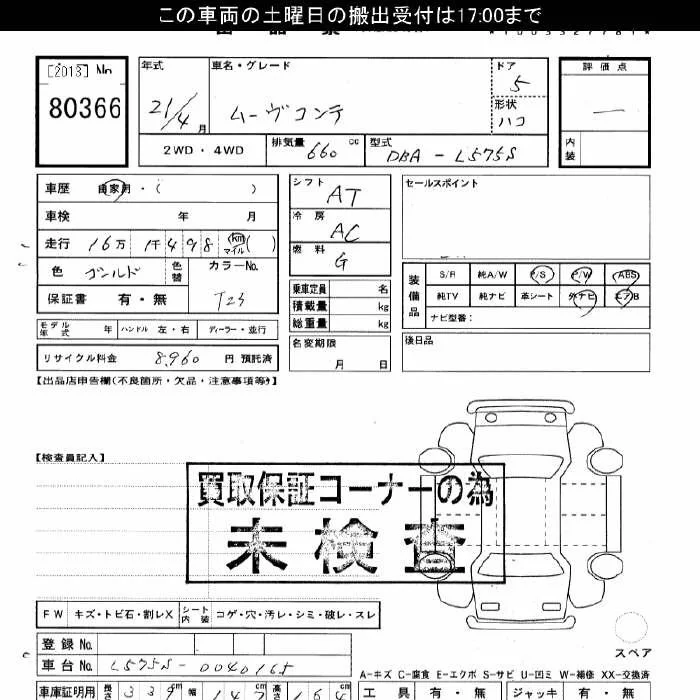 この車両の土曜日の搬出受付は17:00まで
[2013] No
80366
年式
21/4 月
車名・グレード
ムーヴコンテ
ドア
5
形状
ハコ
評価点
―
内装
2WD・4WD
排気量
660 cc
型式
DBA-L575S
車歴 自家用・( )
車検 年 月
走行 16万 1千498 km マイル ( )
色 ゴールド 色替
カラーNo.
T23
保証書 有・無
モデル年式 年 ハンドル 左・右 ディーラー・並行
リサイクル料金 8,960 円 預託済
シフト
AT
冷房
AC
燃料
G
乗車定員 名
積載量 kg
総重量 kg
名変期限
月 日
セールスポイント
装備品
S/R 純A/W P/S P/W ABS
純TV 純ナビ 革シート 外ナビ エアB
ナビ型番:
後日品
【出品店申告欄(不良箇所・欠品・注意事項等)】
【検査員記入】
買取保証コーナーの為
未検査
FW キズ・トビ石・割レX シート内装 コゲ・穴・汚レ・シミ・破レ・スレ
スペア
登録 No.
車台 No. L575S-0040165
A-キズ C-腐食 E-エクボ S-サビ U-凹ミ W-補修 XX-交換済
車庫証明用 長さ 339 cm 幅 147 cm 高さ 164 cm
工具 有・無 ジャッキ 有・無